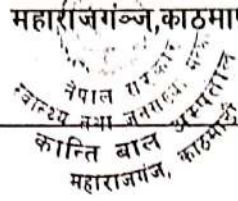 महाराजगञ्ज,काठमा
नेपाल सरकार
स्वास्थ्य तथा जनसंख्या
कान्ति बाल अस्पताल
महाराजगंज, काठमाडौं